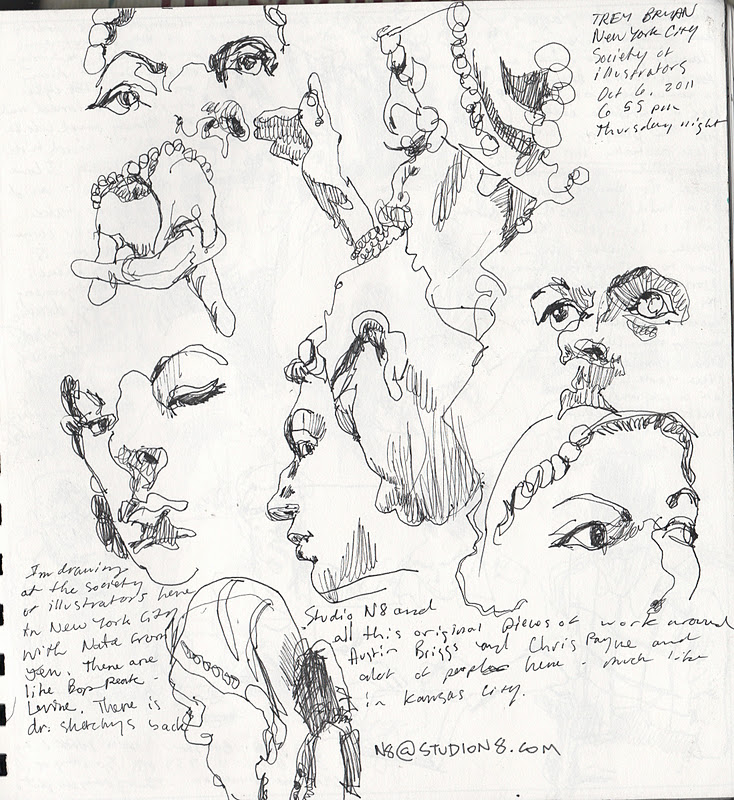 TREY BRYAN
New York City
Society of
illustrators
Oct 6, 2011
6 55 pm
Thursday night
I'm drawing
at the society
of illustrators here
in New York City
with Nate from
yen. There are
like Bob Peak -
Levine. There is
dr. sketchys back
Studio N8 and
all this original pieces of work around
Austin Briggs and Chris Payne and
alot of people here - much like
in Kansas City.
N8@STUDION8.COM